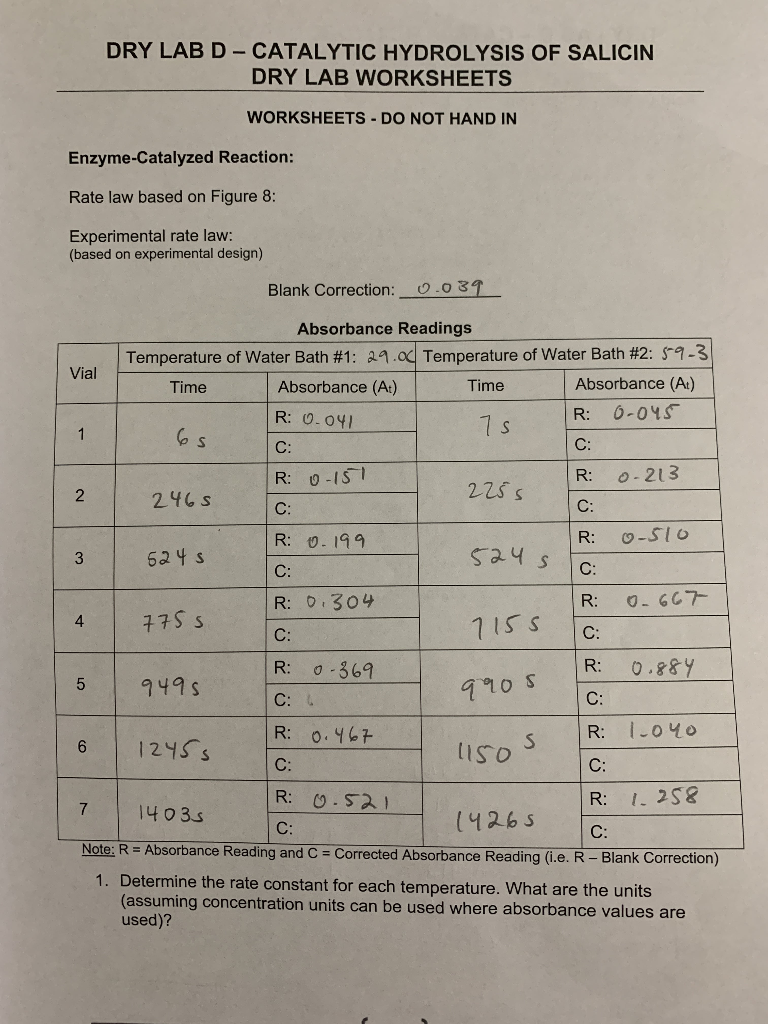 DRY LAB D – CATALYTIC HYDROLYSIS OF SALICIN
DRY LAB WORKSHEETS
WORKSHEETS - DO NOT HAND IN
Enzyme-Catalyzed Reaction:
Rate law based on Figure 8:
Experimental rate law:
(based on experimental design)
Blank Correction: 0.039
Absorbance Readings
Vial
Temperature of Water Bath #1: 29.0C Temperature of Water Bath #2: 59-3
Time Absorbance (At) Time Absorbance (At)
1 6 s R: 0.041 7 s R: 0-045
C: C:
2 246 s R: 0-151 225 s R: 0-213
C: C:
3 524 s R: 0-199 524 s R: 0-510
C: C:
4 775 s R: 0.304 715 s R: 0-667
C: C:
5 949 s R: 0-369 990 s R: 0.884
C: C:
6 1245 s R: 0.467 1150 s R: 1-040
C: C:
7 1403s R: 0.521 1426 s R: 1-258
C: C:
Note: R = Absorbance Reading and C = Corrected Absorbance Reading (i.e. R – Blank Correction)
1. Determine the rate constant for each temperature. What are the units
(assuming concentration units can be used where absorbance values are
used)?